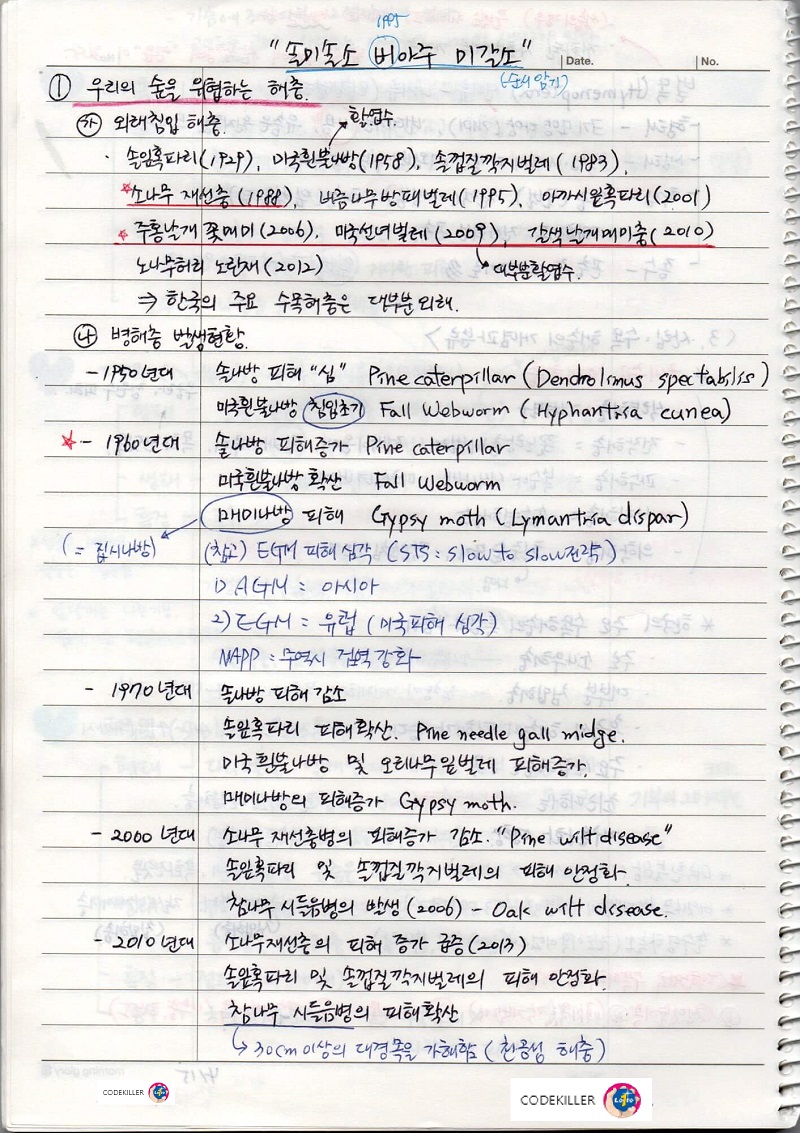 1995
"솔미솔소 버아주 미갈소"
Date.
No.
(순서암기)
① 우리의 숲을 위협하는 해충.
㉮ 외래침입 해충.
활엽수.
· 솔잎혹파리(1929), 미국흰불나방(1958), 솔껍질깍지벌레(1983),
☆소나무 재선충(1988), 버즘나무방패벌레(1995), 아까시잎혹파리(2001)
☆주홍날개꽃매미(2006), 미국선녀벌레(2009), 갈색날개매미충(2010)
노나무허리노린재(2012)
대부분활엽수.
⇒ 한국의 주요 수목해충은 대부분 외래.
㉯ 병해충 발생현황.
- 1950년대 솔나방 피해 "심" Pine caterpillar (Dendrolimus spectabilis)
미국흰불나방 침입초기 Fall Webworm (Hyphantria cunea)
☆ - 1960년대 솔나방 피해증가 Pine caterpillar
미국흰불나방 확산 Fall Webworm
매미나방 피해 Gypsy moth (Lymantria dispar)
(= 집시나방) (참고) EGM 피해심각 (STS : slow to slow전략)
1) AGM : 아시아
2) EGM : 유럽 (미국피해 심각)
NAPP : 무역시 검역강화
- 1970년대 솔나방 피해 감소
솔잎혹파리 피해확산. Pine needle gall midge.
미국흰불나방 및 오리나무잎벌레 피해증가.
매미나방의 피해증가 Gypsy moth.
- 2000년대 소나무 재선충병의 피해증가 감소. "Pine wilt disease"
솔잎혹파리 및 솔껍질깍지벌레의 피해 안정화.
참나무 시들음병의 발생 (2006) - Oak wilt disease.
- 2010년대 소나무재선충의 피해 증가 급증(2013)
솔잎혹파리 및 솔껍질깍지벌레의 피해 안정화.
참나무 시들음병의 피해확산
↳ 30cm이상의 대경목을 가해함 (천공성 해충)
CODEKILLER
CODEKILLER